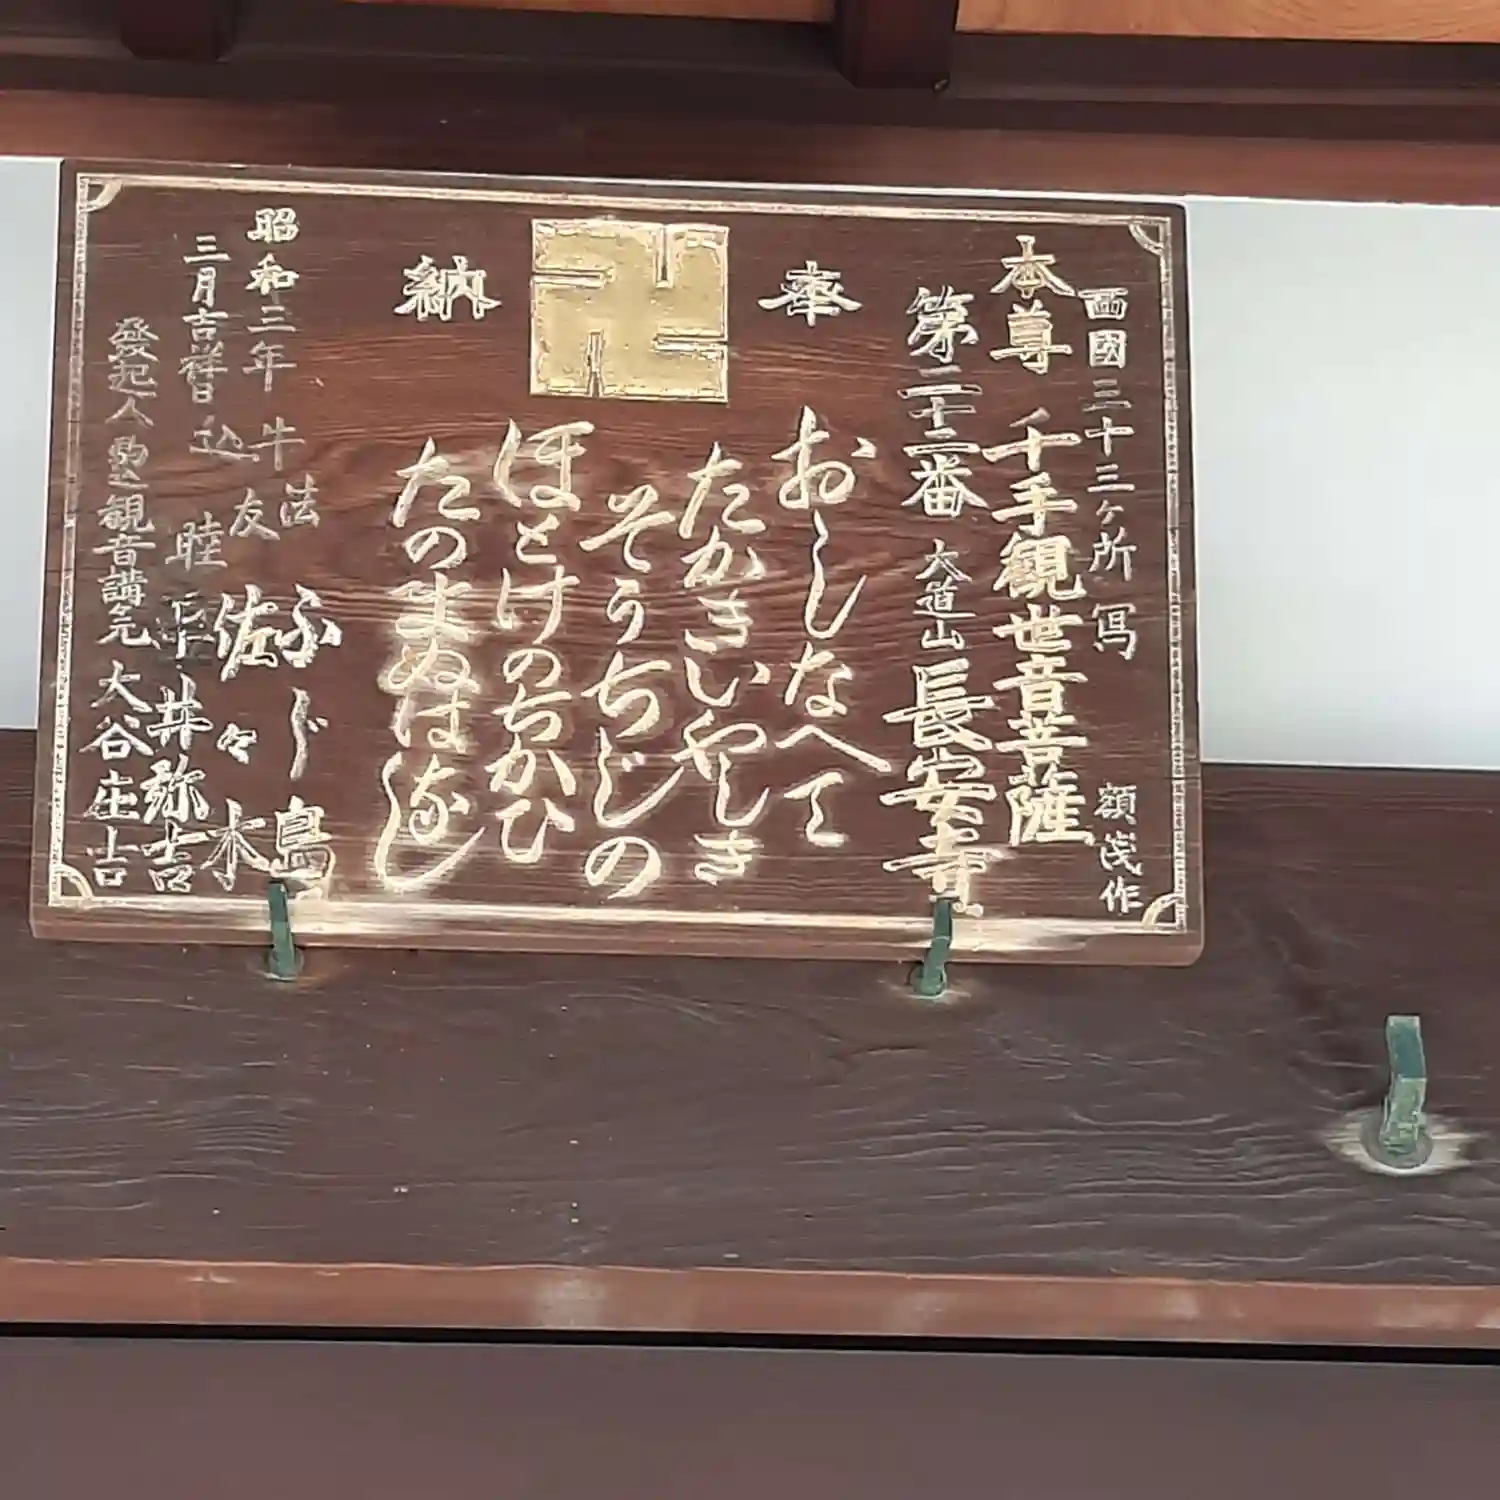 西國三十三ヶ所写
額浅作
本尊 千手観世音菩薩
第二十二番 大道山 長安寺
奉納
おしなへて
たかきいやしき
そうちじの
ほとけのちかひ
たのまぬはなし
昭和三年
三月吉祥日
牛込
法友睦
ふじ島
佐々木
平井弥吉
發起人 駒込観音講元 大谷庄吉